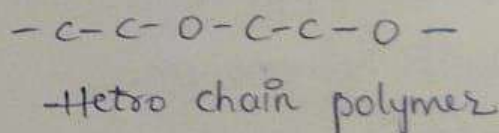 - C - C - O - C - C - O -
Hetro chain polymer